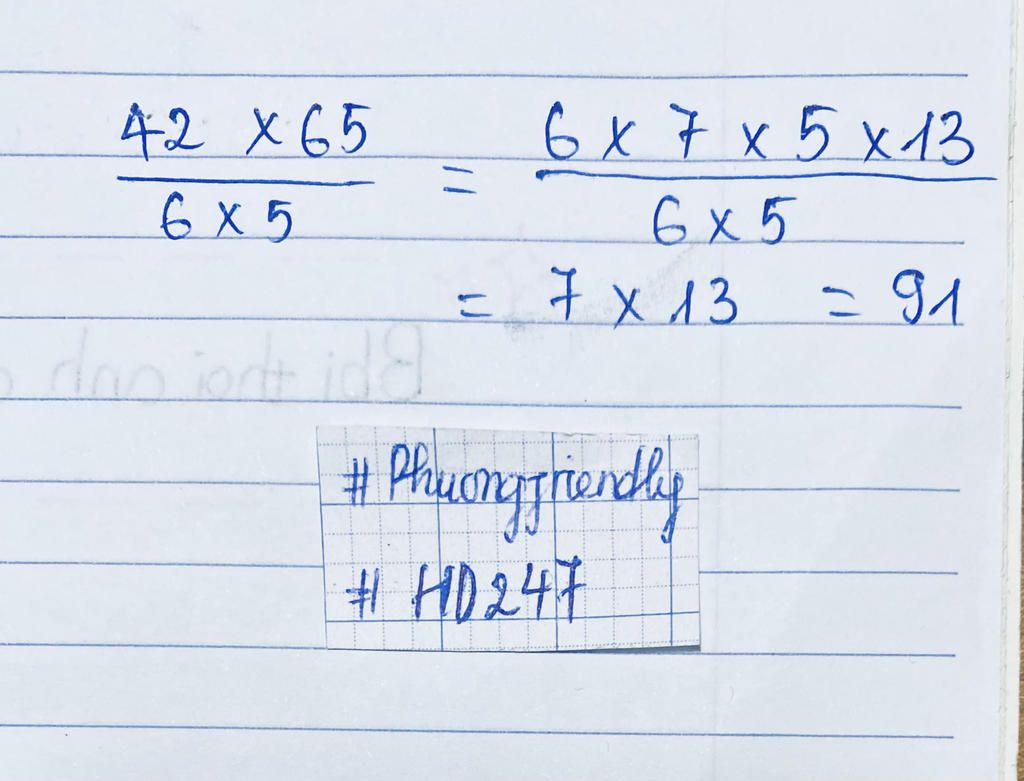 42 x 65 / 6 x 5 = 6 x 7 x 5 x 13 / 6 x 5
= 7 x 13 = 91
# Phuongfriendly
# HD247